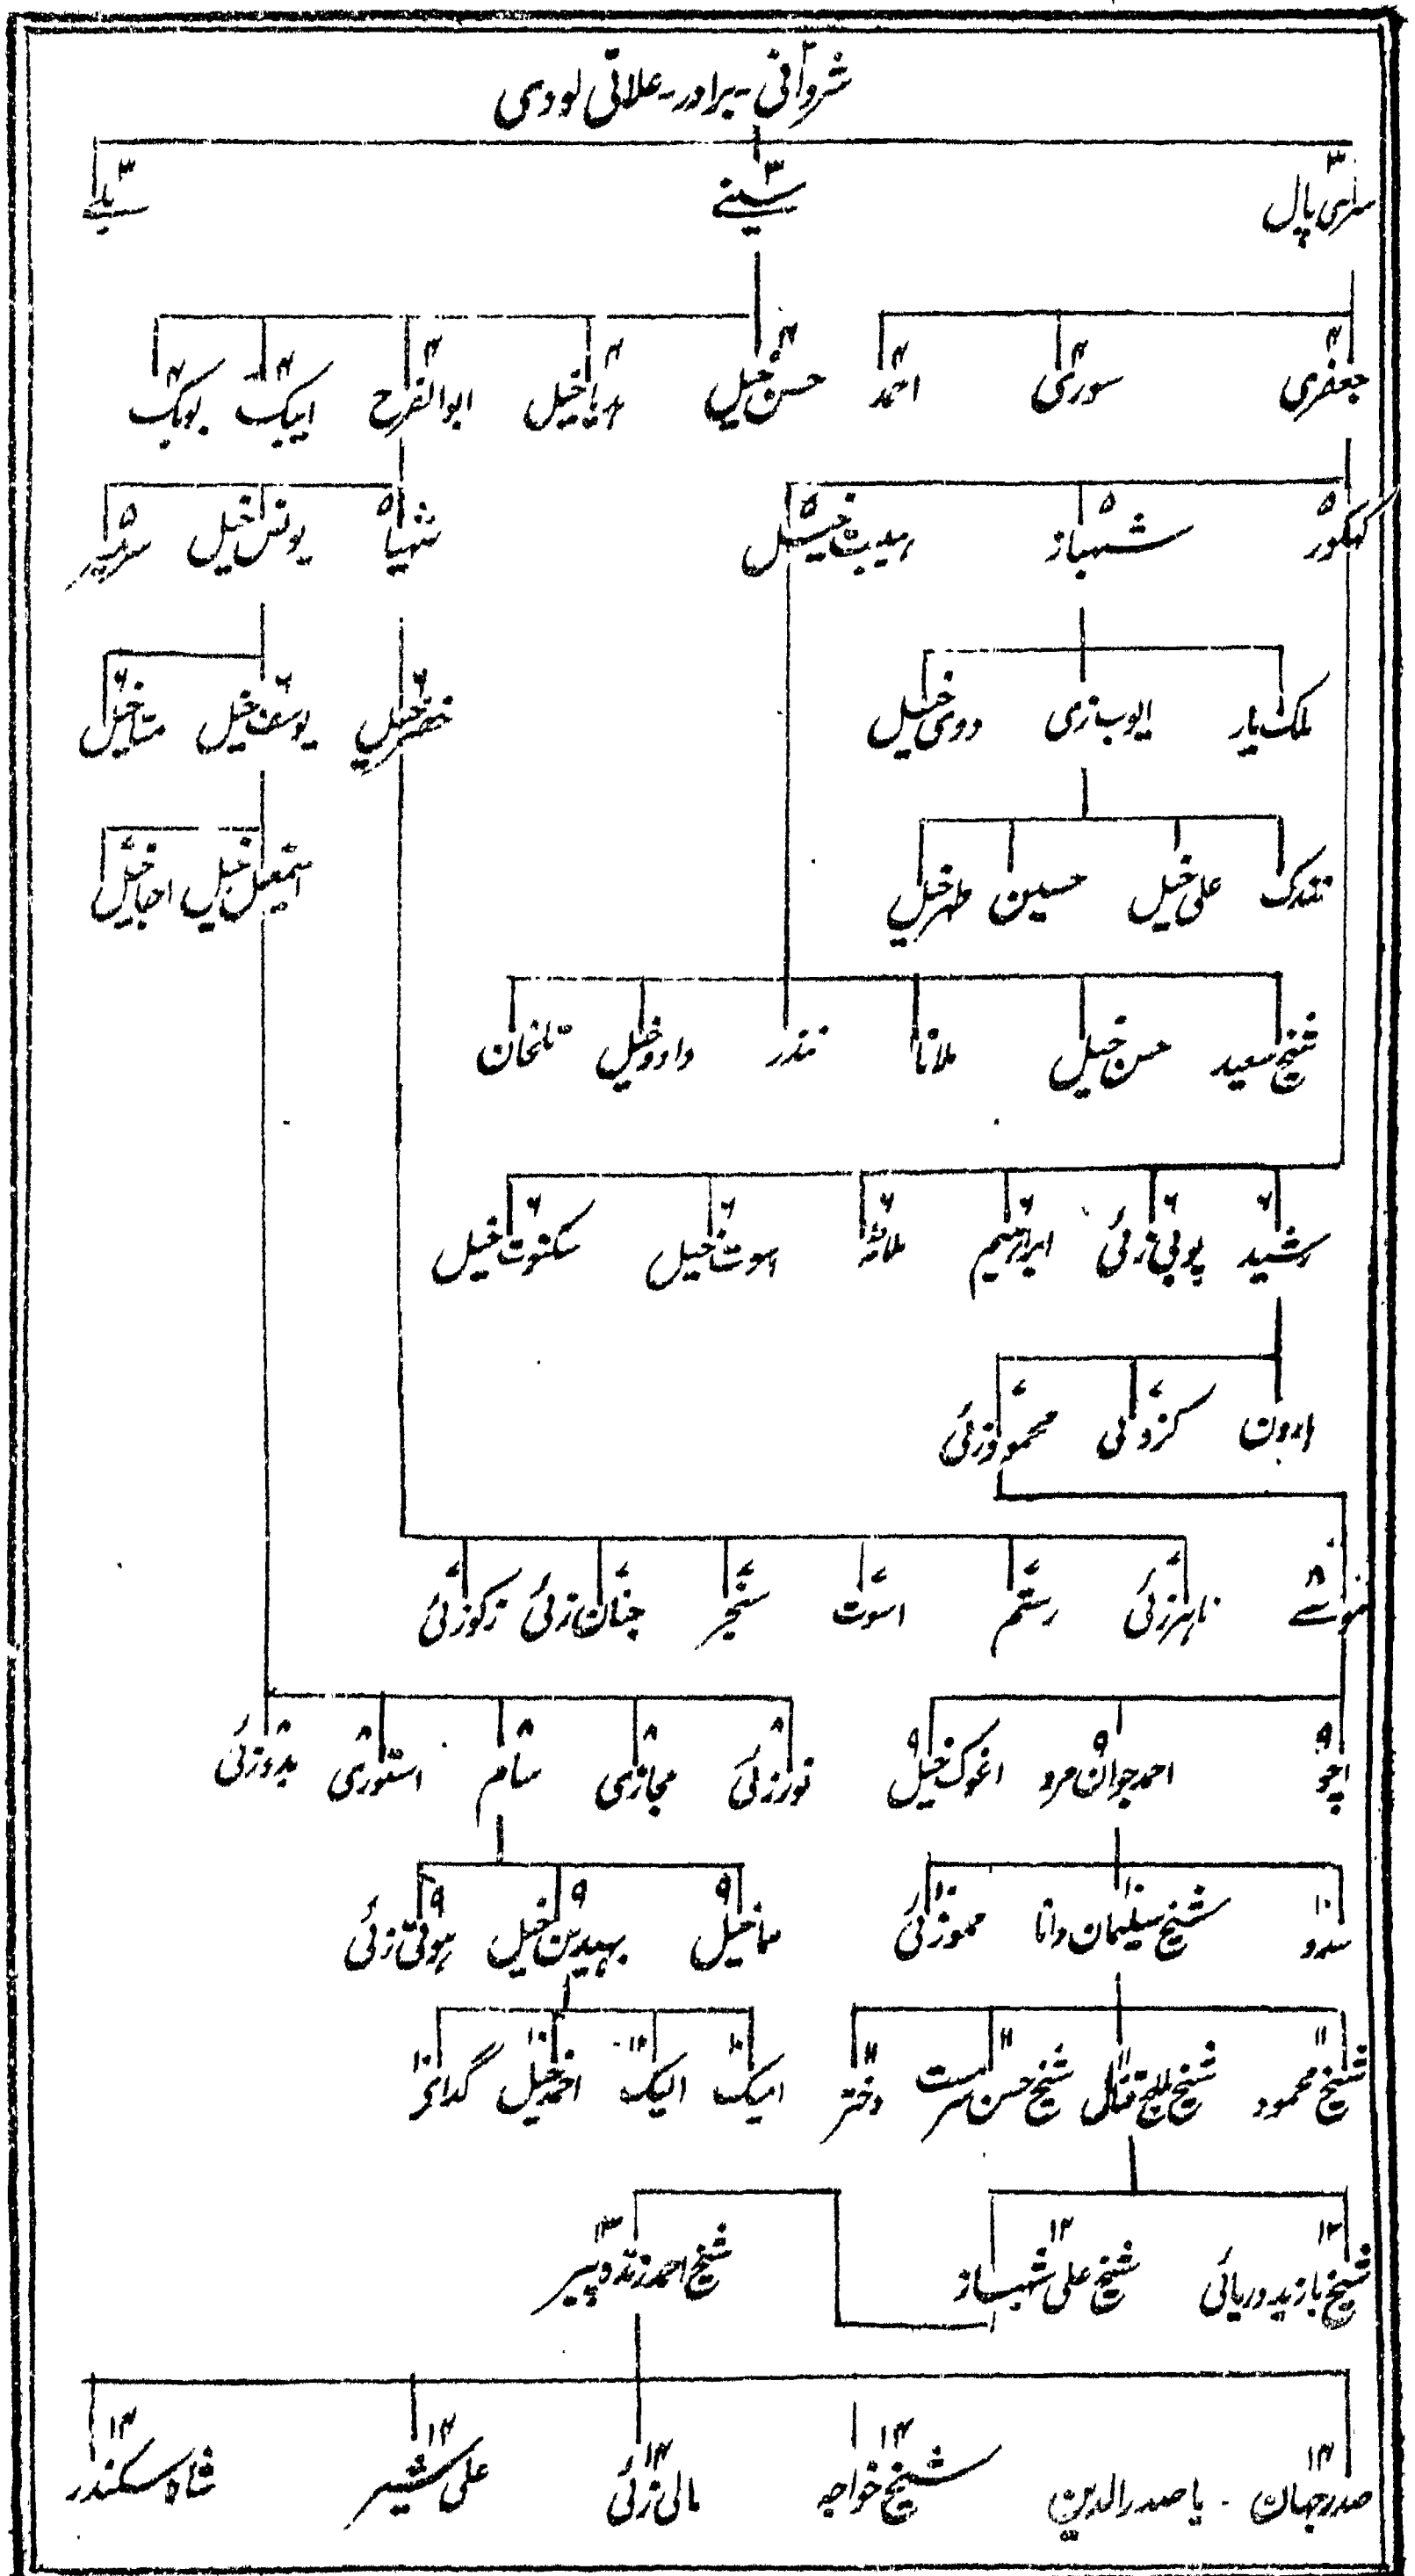 شروانی - برادر - علاتی لودی
۳ سری پال ۳ سینے ۳
۴ جعفری ۴ سوری ۴ احمد ۴ حسن خیل ۴ ہریا خیل ۴ ابوالفرح ۴ ایبک ۴ بوبک
۵ ککور ۵ شہباز ۵ ہیبت خیل ۵ شہیا یونس خیل ۵
ملک یار ایوب زی دودی خیل ۶ خضر خیل ۶ یوسف خیل ۶ متاخیل
تندک علی خیل حسین طہر خیل اسمعیل خیل اجاخیل
شیخ سعید حسن خیل ملانا نندر داودخیل تلخان
۶ رشید ۶ پوپی زئی ۶ ابراہیم ۶ ۶ اسوت خیل ۶ سکنوت خیل
ہارون ۷ کزوئی ۷ محمود زئی
۸ ۷ ناہر زئی ۷ رستم ۷ اسوت ۷ سنجر ۷ چنان زئی ۷ زکوزئی
۹ اچو ۹ احمد جوان مرد ۹ اغوک خیل ۸ نورزئی ۸ مجازی ۸ سام ۸ استوری ۸ بدوزئی
۱۰ سدو ۱۰ شیخ سلیمان دانا ۱۰ مموزئی ۹ مماخیل ۹ بہیدین خیل ۹ ہوتی زئی
۱۱ شیخ محمود ۱۱ شیخ ملیح قتال ۱۱ شیخ حسن سرمست ۱۱ دختر ۱۰ ایبک ۱۰ الیک ۱۰ احمد خیل ۱۰ گدائی
۱۲ شیخ بازید دریائی ۱۲ شیخ علی شہباز ۱۳ شیخ احمد زندہ پیر
۱۴ صدر جہان - یا صدر الدین ۱۴ شیخ خواجہ ۱۴ مالی زئی ۱۴ علی شیر ۱۴ شاہ سکندر